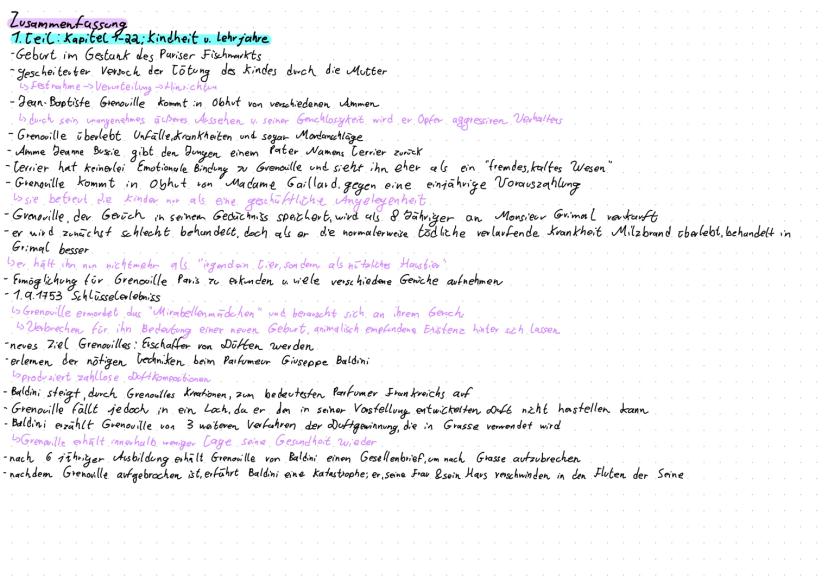 Zusammenfassung
1. Teil: Kapitel 1-22; Kindheit u. Lehrjahre
- Geburt im Gestank des Pariser Fischmarkts
- gescheiterter Versuch der Tötung des Kindes durch die Mutter
↳ Festnahme → Verurteilung → Hinrichtun
- Jean-Baptiste Grenouille kommt in Obhut von verschiedenen Ammen
↳ durch sein unangenehmes äußeres Aussehen u. seiner Geruchlosigkeit wird er Opfer aggressiven Verhaltens
- Grenouille überlebt Unfälle, Krankheiten und sogar Mordanschläge
- Amme Jeanne Bussie gibt den Jungen einem Pater Namens Terrier zurück
- Terrier hat keinerlei Emotionale Bindung zu Grenouille und sieht ihn eher als ein "fremdes, kaltes Wesen"
- Grenouille kommt in Obhut von Madame Gaillard, gegen eine einjährige Vorauszahlung
↳ sie betreut die Kinder nur als eine geschäftliche Angelegenheit
- Grenouille, der Gerüch in seinem Gedächtnis speichert, wird als 8 Jähriger an Monsieur Grimal verkauft
- er wird zunächst schlecht behandelt, doch als er die normalerweise tödliche verlaufende Krankheit Milzbrand überlebt, behandelt in
Grimal besser
↳ er hält ihn nun nichtmehr als "irgendein Tier, sondern als nützliches Haustier"
- Ermöglichung für Grenouille Paris zu erkunden u. viele verschiedene Gerüche aufnehmen
- 1.9.1753 Schlüsselerlebniss
↳ Grenouille ermordet das "Mirabellenmädchen" und berauscht sich an ihrem Geruch
↳ Verbrechen für ihn Bedeutung einer neuen Geburt, animalisch empfundene Existenz hinter sich lassen
- neues Ziel Grenouilles: Erschaffer von Düften werden
- erlernen der nötigen Techniken beim Parfumeur Giuseppe Baldini
↳ produziert zahllose Duftkompositionen
- Baldini steigt, durch Grenoulles Kreationen, zum bedeutesten Parfumer Frankreichs auf
- Grenouille fällt jedoch in ein Loch, da er den in seiner Vorstellung entwickelten Duft nicht herstellen kann
- Baldini erzählt Grenouille von 3 weiteren Verfahren der Duftgewinnung, die in Grasse verwendet wird
↳ Grenouille erhält innerhalb weniger Tage seine Gesundheit wieder
- nach 6 jähriger Ausbildung erhält Grenouille von Baldini einen Gesellenbrief, um nach Grasse aufzubrechen
- nachdem Grenouille aufgebrochen ist, erfährt Baldini eine Katastrophe; er, seine Frau & sein Haus verschwinden in den Fluten der Seine